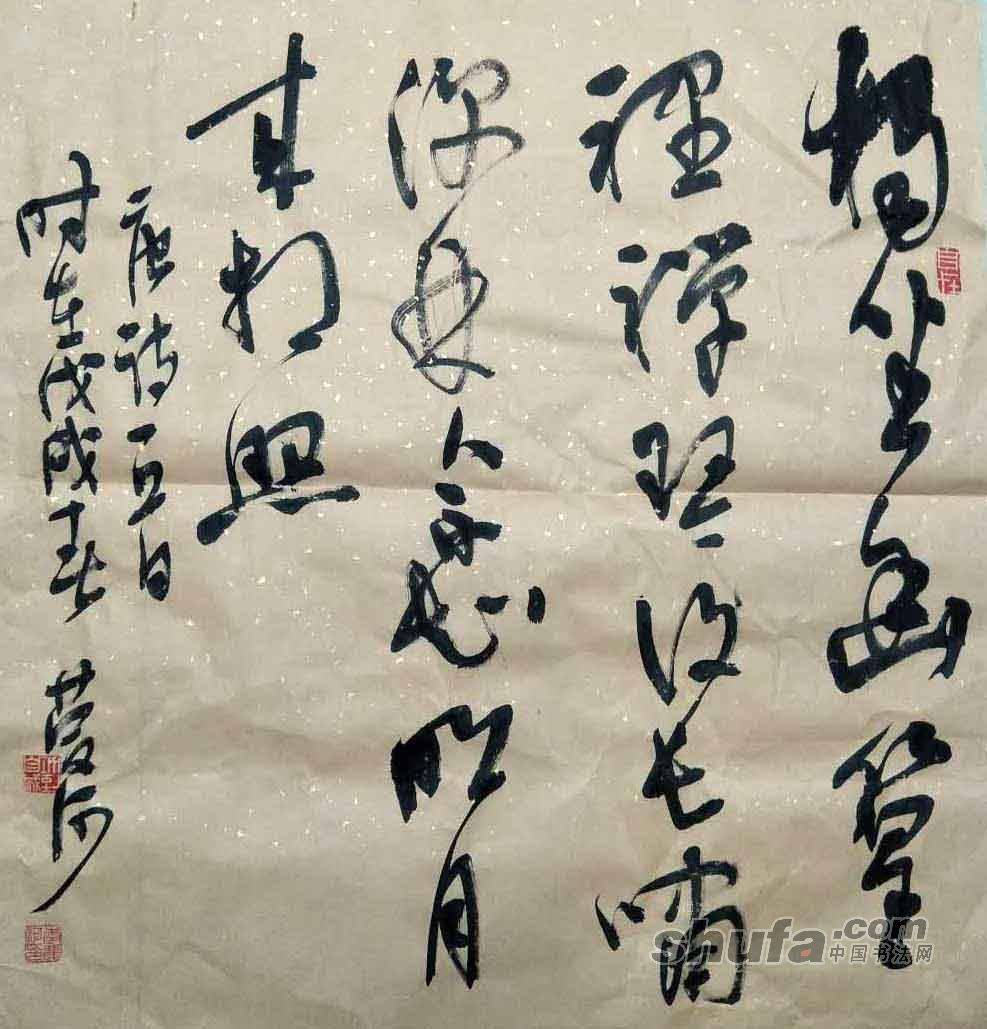 獨坐幽篁
裡彈琴復长嘯
深林人不知明月
来相照
唐诗一首
时在戊戌春
shufa.com
中国书法网